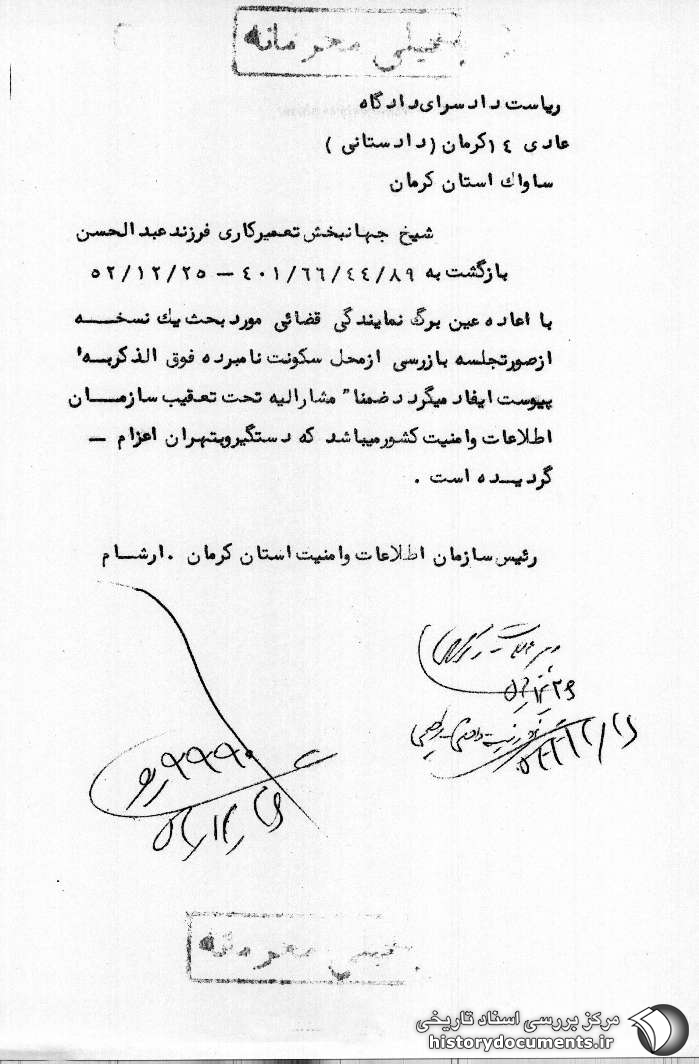 خیلی محرمانه
ریاست دادسرای دادگاه
عادی ١٤کرمان (دادستانی )
ساواك استان کرمان
شیخ جهانبخش تعمیرکاری فرزند عبدالحسن
بازگشت به ٤٠١/٦٦/٤٤/٨٩ – ٥٢/١٢/٢٥
با اعاده عین برگ نمایندگی قضائی مورد بحث یك نسخـــه
ازصورتجلسه بازرسی ازمحل سکونت نامبرده فوق الذکربــه
پیوست ایفاد میگردد ضمنا" مشارالیه تحت تعقیب سازمـــان
اطلاعات وامنیت کشورمیباشد که دستگیروبتهران اعزام –
گردیـــده است .
رئیس سازمان اطلاعات وامنیت استان کرمان .ارشـــام
خیلی محرمانه
مرکز بررسی اسناد تاریخی
historydocuments.ir